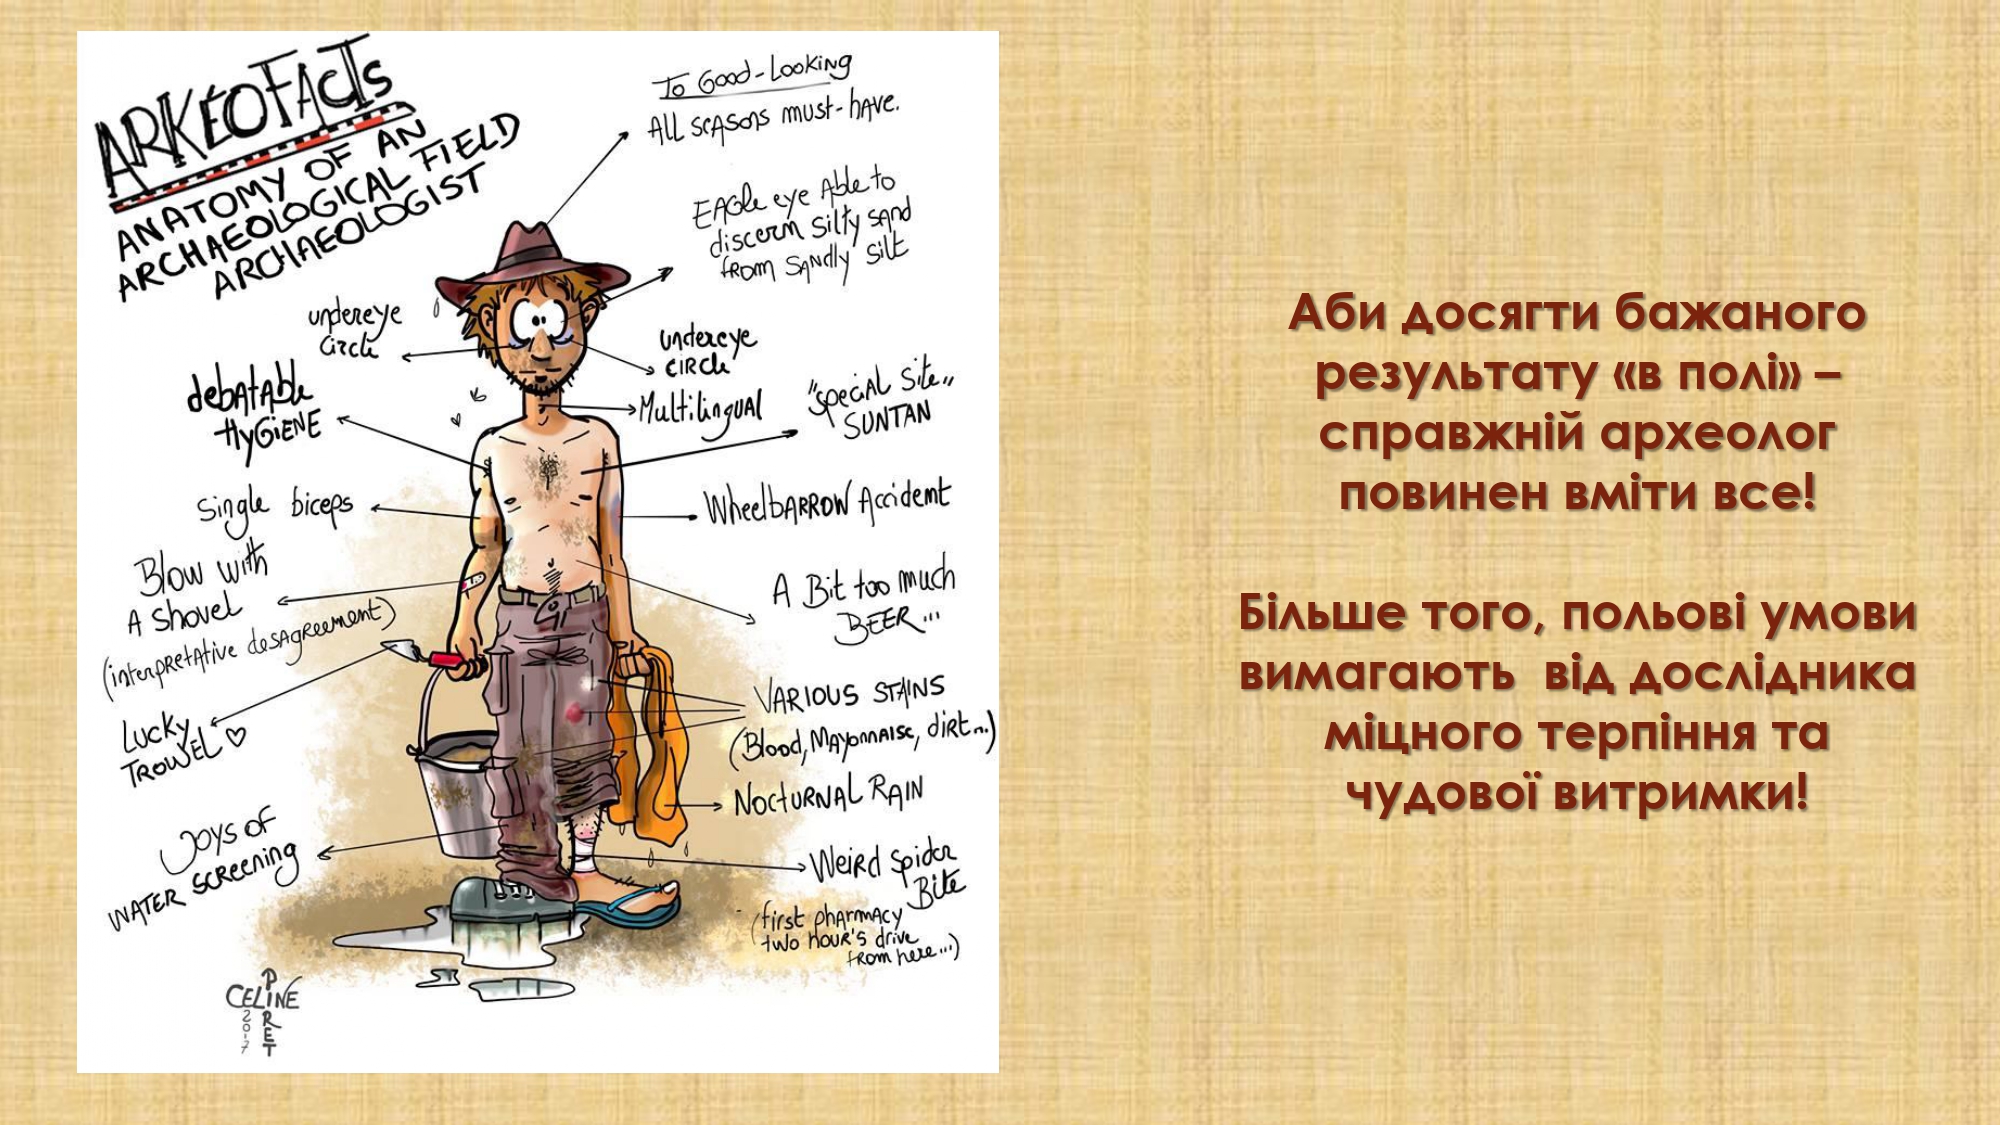 ARKEOFACTS
ANATOMY OF AN
ARCHAEOLOGICAL FIELD
ARCHAEOLOGIST
To Good-Looking
All seasons must-have.
EAGle eye Able to
discern silty sand
from sandly silt
undereye
circle
undereye
circle
debatable
Hygiene
Multilingual
"special site"
SUNTAN
Single biceps
WheelbARROW Accident
Blow with
A shovel
(interpretative desagreement)
A Bit too much
BEER...
Lucky
TROWEL ♡
VARIOUS STAINS
(Blood, Mayonnaise, dirt...)
Nocturnal Rain
Joys of
WATER SCREENING
Weird Spider
Bite
(first pharmacy
two hour's drive
from here...)
CELINE
PIRET
2017
Аби досягти бажаного
результату «в полі» –
справжній археолог
повинен вміти все!
Більше того, польові умови
вимагають від дослідника
міцного терпіння та
чудової витримки!